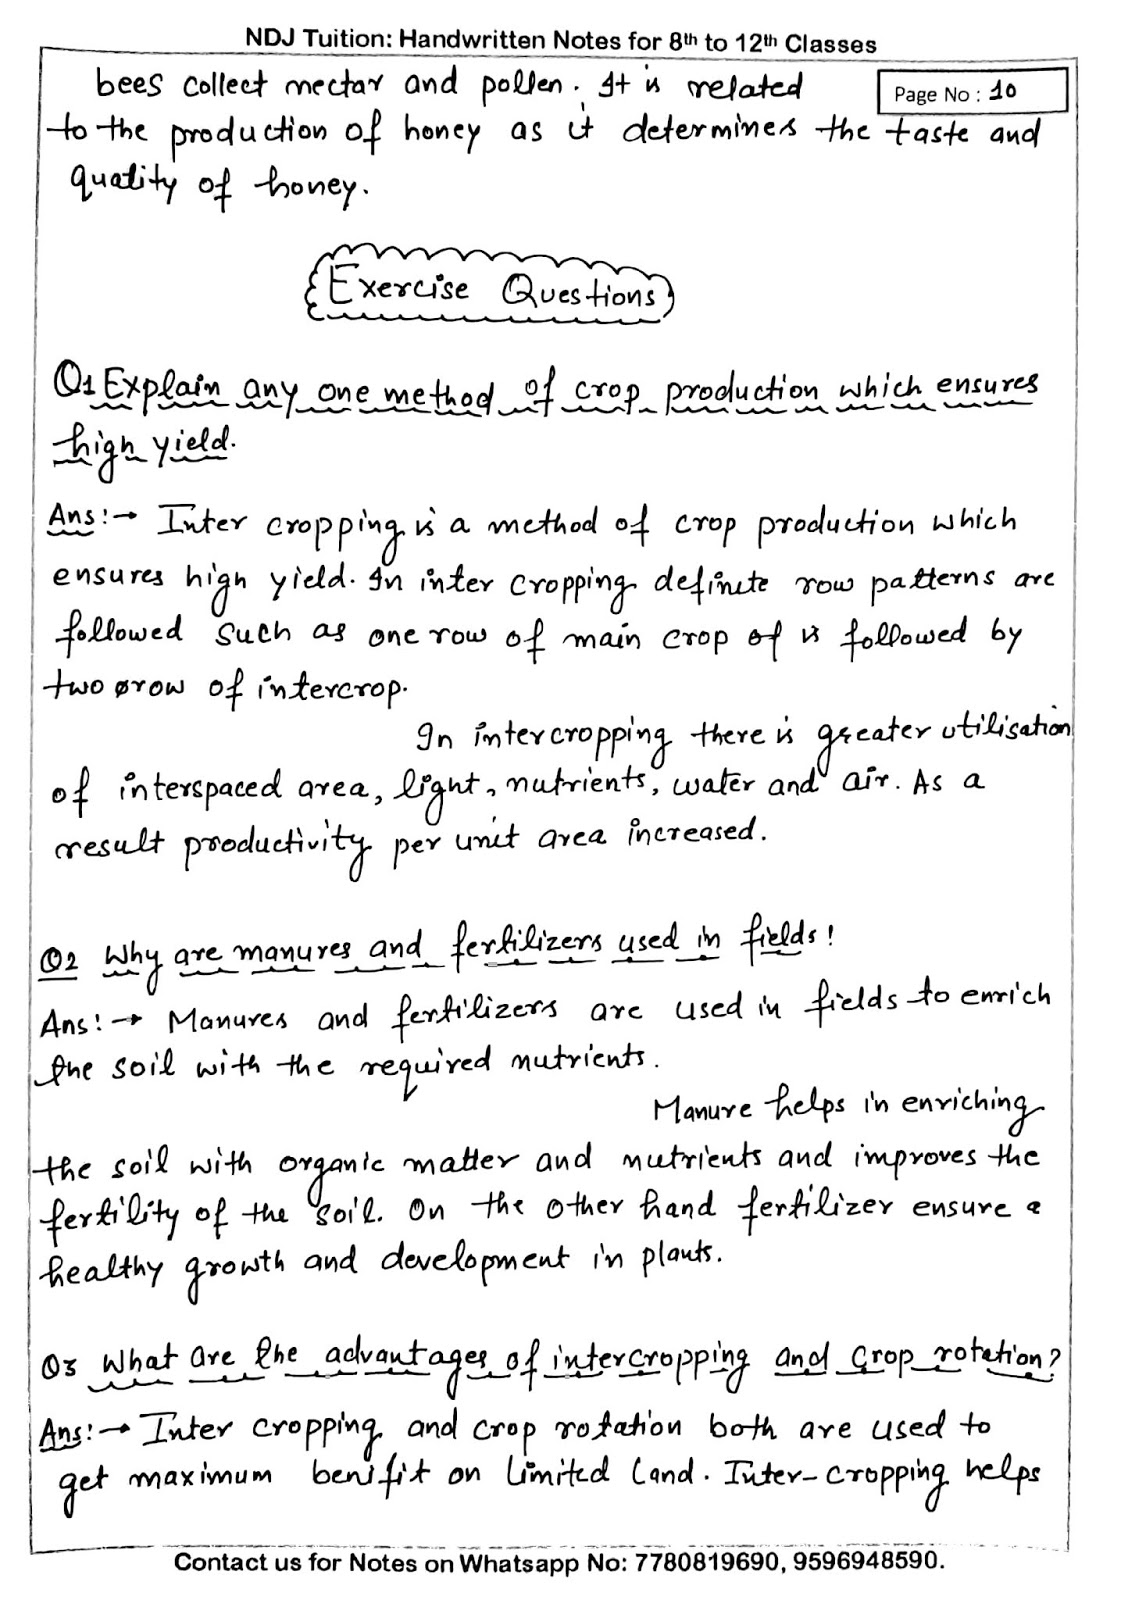 NDJ Tuition: Handwritten Notes for 8th to 12th Classes
Page No : 10
bees collect nectar and pollen. It is related
to the production of honey as it determines the taste and
quality of honey.
Exercise Questions
Q1 Explain any one method of crop production which ensures
high yield.
Ans:→ Inter cropping is a method of crop production which
ensures high yield. In inter cropping definite row patterns are
followed such as one row of main crop of is followed by
two row of intercrop.
In intercropping there is greater utilisation
of interspaced area, light, nutrients, water and air. As a
result productivity per unit area increased.
Q2 Why are manures and fertilizers used in fields!
Ans:→ Manures and fertilizers are used in fields to enrich
the soil with the required nutrients.
Manure helps in enriching
the soil with organic matter and nutrients and improves the
fertility of the soil. On the other hand fertilizer ensure a
healthy growth and development in plants.
Q3 What are the advantages of intercropping and Crop rotation?
Ans:→ Inter cropping and crop rotation both are used to
get maximum benifit on limited land. Inter-cropping helps
Contact us for Notes on Whatsapp No: 7780819690, 9596948590.